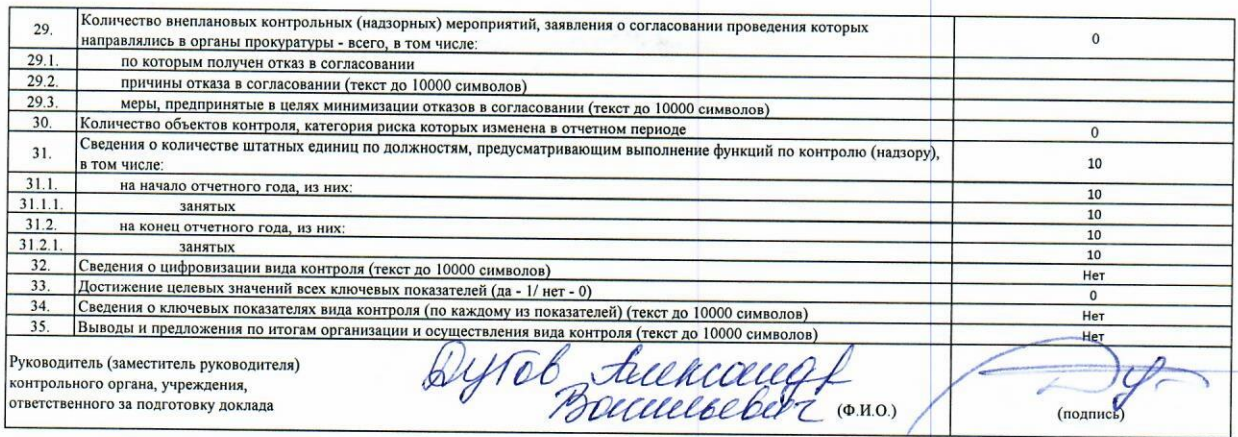 29. Количество внеплановых контрольных (надзорных) мероприятий, заявления о согласовании проведения которых
направлялись в органы прокуратуры - всего, в том числе: 0
29.1. по которым получен отказ в согласовании
29.2. причины отказа в согласовании (текст до 10000 символов)
29.3. меры, предпринятые в целях минимизации отказов в согласовании (текст до 10000 символов)
30. Количество объектов контроля, категория риска которых изменена в отчетном периоде 0
31. Сведения о количестве штатных единиц по должностям, предусматривающим выполнение функций по контролю (надзору),
в том числе: 10
31.1. на начало отчетного года, из них: 10
31.1.1. занятых 10
31.2. на конец отчетного года, из них: 10
31.2.1. занятых 10
32. Сведения о цифровизации вида контроля (текст до 10000 символов) Нет
33. Достижение целевых значений всех ключевых показателей (да - 1/ нет - 0) 0
34. Сведения о ключевых показателях вида контроля (по каждому из показателей) (текст до 10000 символов) Нет
35. Выводы и предложения по итогам организации и осуществления вида контроля (текст до 10000 символов) Нет
Руководитель (заместитель руководителя)
контрольного органа, учреждения,
ответственного за подготовку доклада
Дутов Александр
Васильевич (Ф.И.О.)
(подпись)